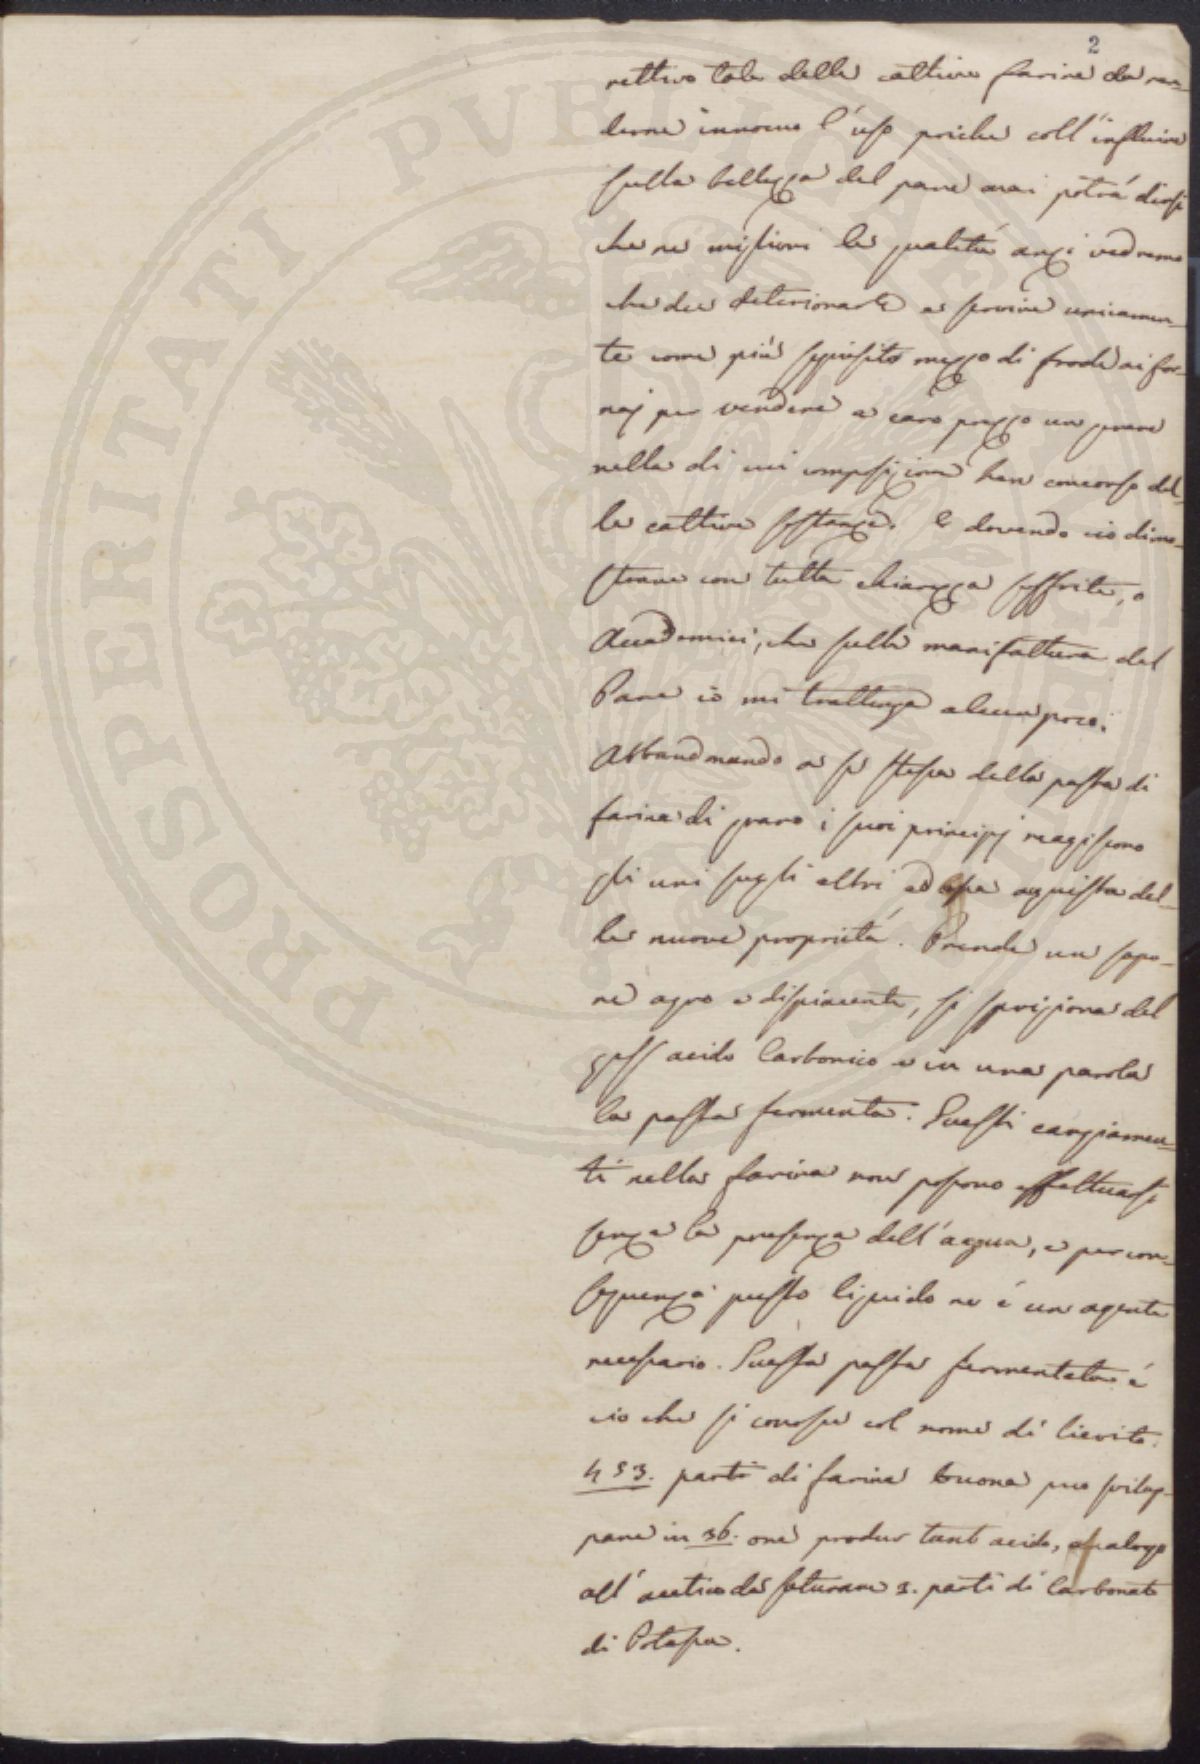 2
rettivo tale delle cattive farine da ren-
derne innocuo l'uso poiche coll'influire
sulla bellezza del pane mai potrá dirsi
che ne migliori la qualitá anzi vedremo
che dee deteriorarla e servire unicamen-
te come più squisito mezzo di frode ai for-
naj per vendere a caro prezzo un pane
nella di cui composizione han concorso del-
le cattive sostanze. E dovendo ciò dimo-
strare con tutta chiarezza soffrite, o
Accademici, che sulla manifattura del
Pane io mi trattenga alcun poco.
Abbandonando a se stessa della pasta di
farina di grano i suoi principj reagiscono
gli uni sugli altri ed essa acquista del-
le nuove proprietá. Prende un sapo-
re agro e dispiacente, si sprigiona del
gass acido Carbonico e in una parola
la pasta fermenta. Questi cangiamen-
ti nella farina non possono effettuarsi
senza la presenza dell'acqua, e per con-
seguenza questo liquido ne é un agente
necessario. Questa pasta fermentata é
ciò che si conosce col nome di lievito.
453. parti di farina buona può svilup-
pare in 36. ore produr tant acido, analogo
all'acetico da saturare 3. parti di Carbonato
di Potassa.
PROSPERITATI PVBLICAE